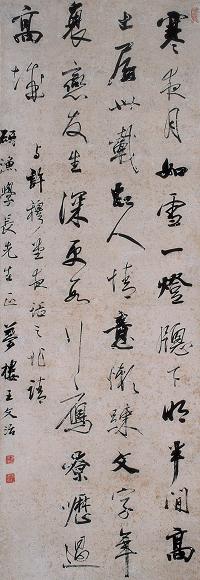 寒夜月如雪一燈牕下明半間高
士屋卅載故人情意懶疎文字年
衰戀友生深更數行雁嘹嚦過
高城
与許穆堂夜話之作請
研漁學長先生正 夢樓王文治